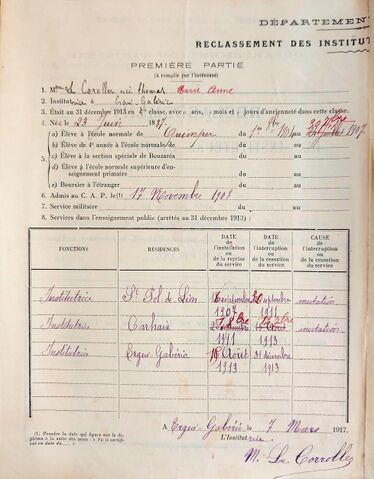 DÉPARTEMEN
RECLASSEMENT DES INSTITUT
PREMIÈRE PARTIE
(A remplir par l'intéressé)
1. Mme Le Corollec née Thomas Marie Anne
2. Institutrice à Ergué-Gabéric
3. Était au 31 décembre 1913 en 4e classe, avec ans, mois et jours d'ancienneté dans cette classe.
4. Né le 23 Juin 1887
5. a) Élève à l'école normale de Quimper 1er 8bre 30 Juillet 1907
b) Élève de 4e année à l'école normale/de
c) Élève à la section spéciale de Bouzaréa
d) Élève à l'école normale supérieure d'enseignement primaire
e) Boursier à l'étranger
6. Admis au C. A. P. le (1) 17 Novembre 1908
7. Service militaire
8. Services dans l'enseignement public (arrêtés au 31 décembre 1913) :
FONCTIONS RÉSIDENCES DATE de l'installation ou de la reprise du service DATE de l'interruption ou de la cessation du service CAUSE de l'interruption ou de la cessation du service
Institutrice St Pol de Léon septembre 1907 30 septembre 1911 mutation
Institutrice Carhaix 1911 1913 mutation
Institutrice Ergué Gabéric 18 Août 1913 31 décembre 1913
A Ergué-Gabéric le 7 Mars 1917,
(1) Prendre la date qui figure sur le diplôme à la suite des mots « Fait le certificat en date du.... »
L'Institutrice.
M. Le Corrollec